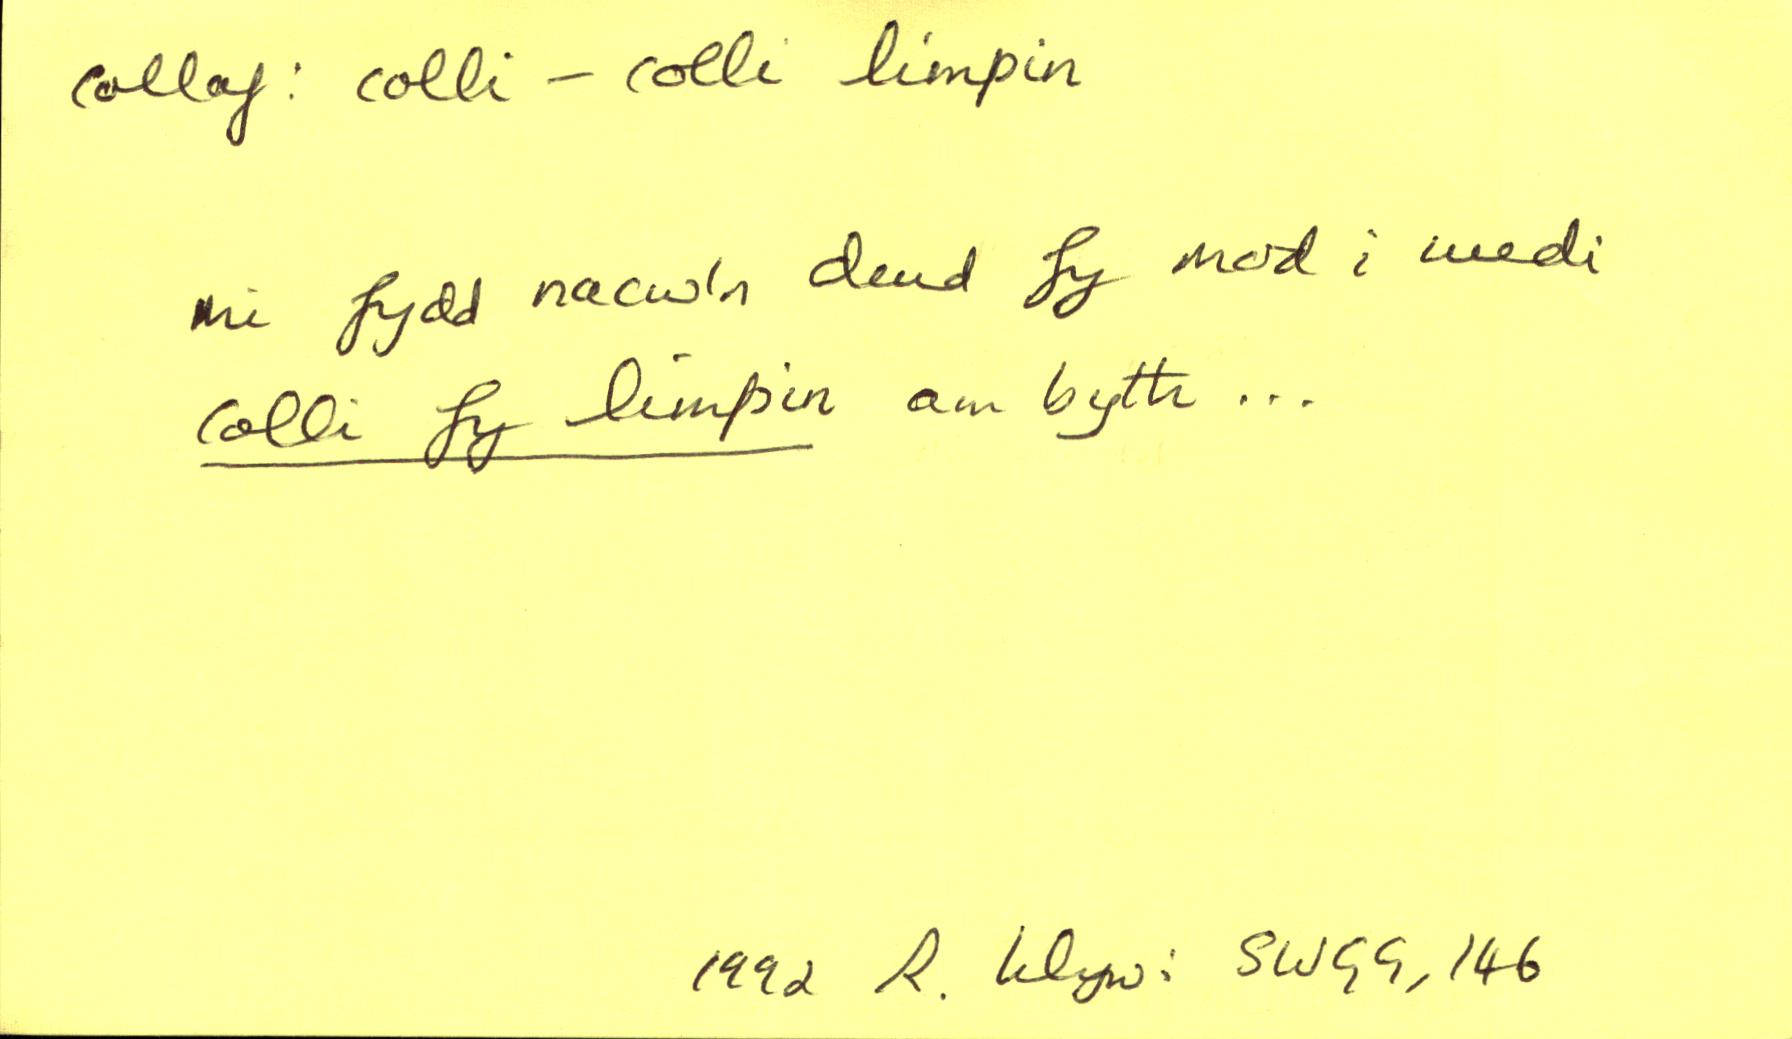 collaf: colli – colli limpin
mi fydd nacw'n deud fy mod i wedi
colli fy limpin am byth ...
1992 R. Llwyd: SWGG, 146